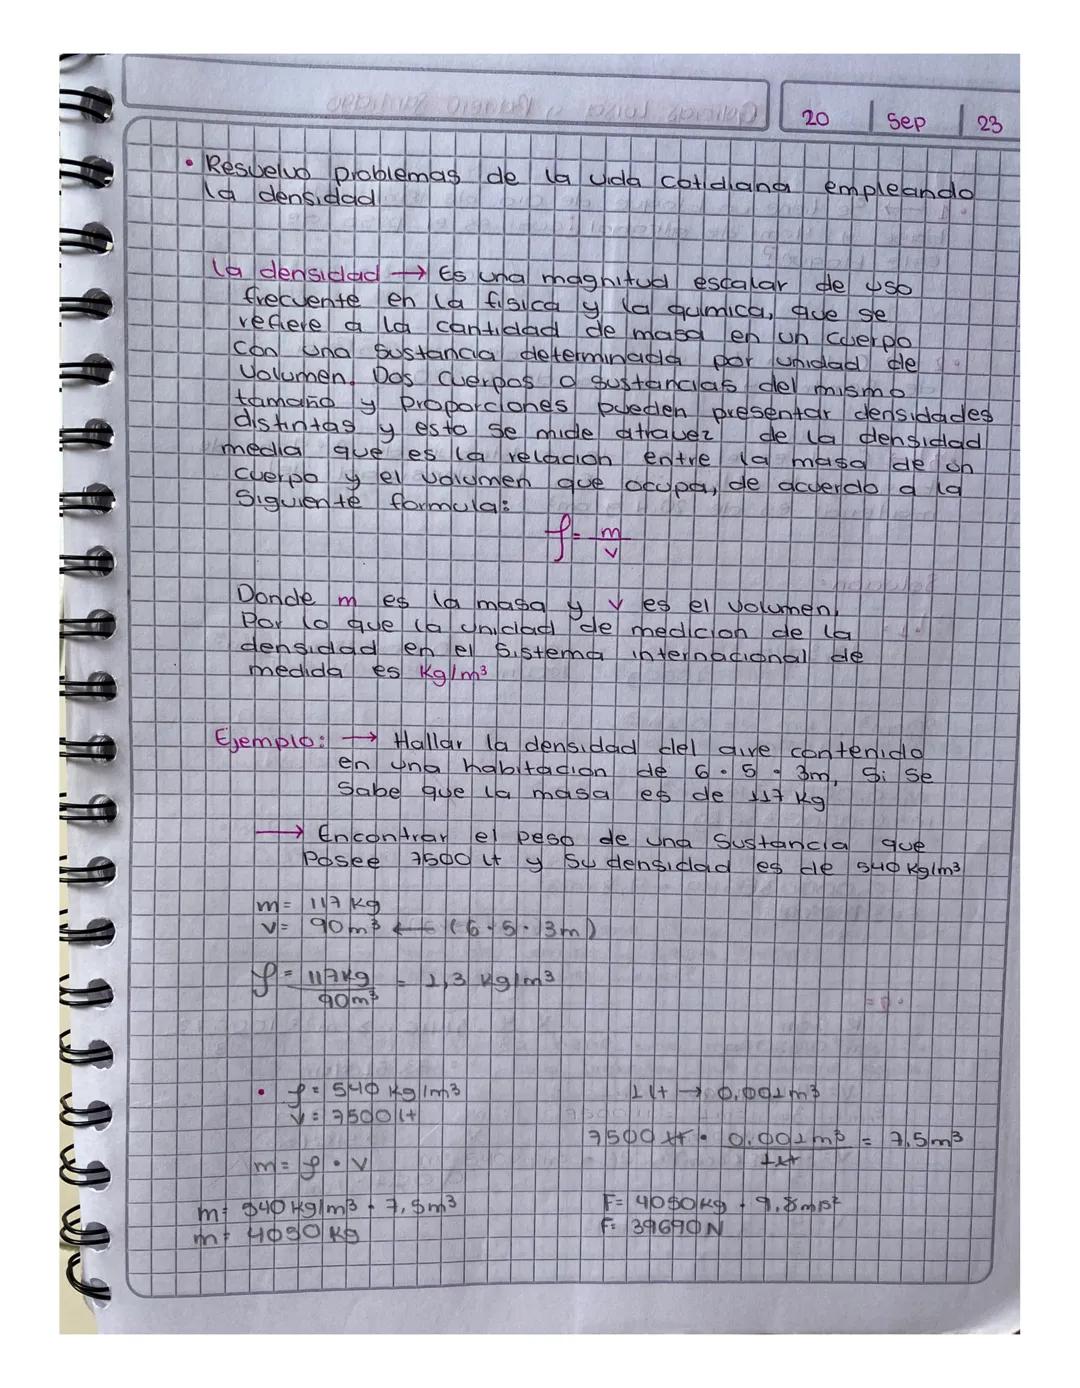 20 Sep 23
• Resuelvo problemas de la vida cotidiana empleando
la densidad
la densidad → Es una magnitud escalar de uso
frecuente en la física y la química, que se
refiere a la cantidad de masa en un cuerpo
con una sustancia determinada por unidad de
volumen. Dos cuerpos o sustancias del mismo
tamaño y proporciones pueden presentar densidades
distintas y esto se mide atravez de la densidad
media que es la relacion entre la masa de un
cuerpo y el volumen que ocupa, de acuerdo a la
siguiente formula:
ρ = m
v
Donde m es la masa y v es el volumen,
Por lo que la unidad de medicion de la
densidad en el sistema internacional de
medida es Kg/m³
Ejemplo: → Hallar la densidad del aire contenido
en una habitacion de 6 • 5 • 3m, Si se
sabe que la masa es de 117 Kg
→ Encontrar el peso de una sustancia que
Posee 7500 Lt y su densidad es de 540 Kg/m³
m= 117 Kg
v= 90 m³ ← (6 • 5 • 3m)
ρ = 117Kg = 1,3 Kg/m³
90m³
• ρ = 540 Kg/m³ 1 Lt → 0,001m³
v = 7500 Lt
7500 Lt • 0,001m³ = 7,5m³
1Lt
m= ρ • v
m= 540 Kg/m³ • 7,5m³ F= 4050Kg • 9,8m/s²
m= 4050 Kg F= 39690 N